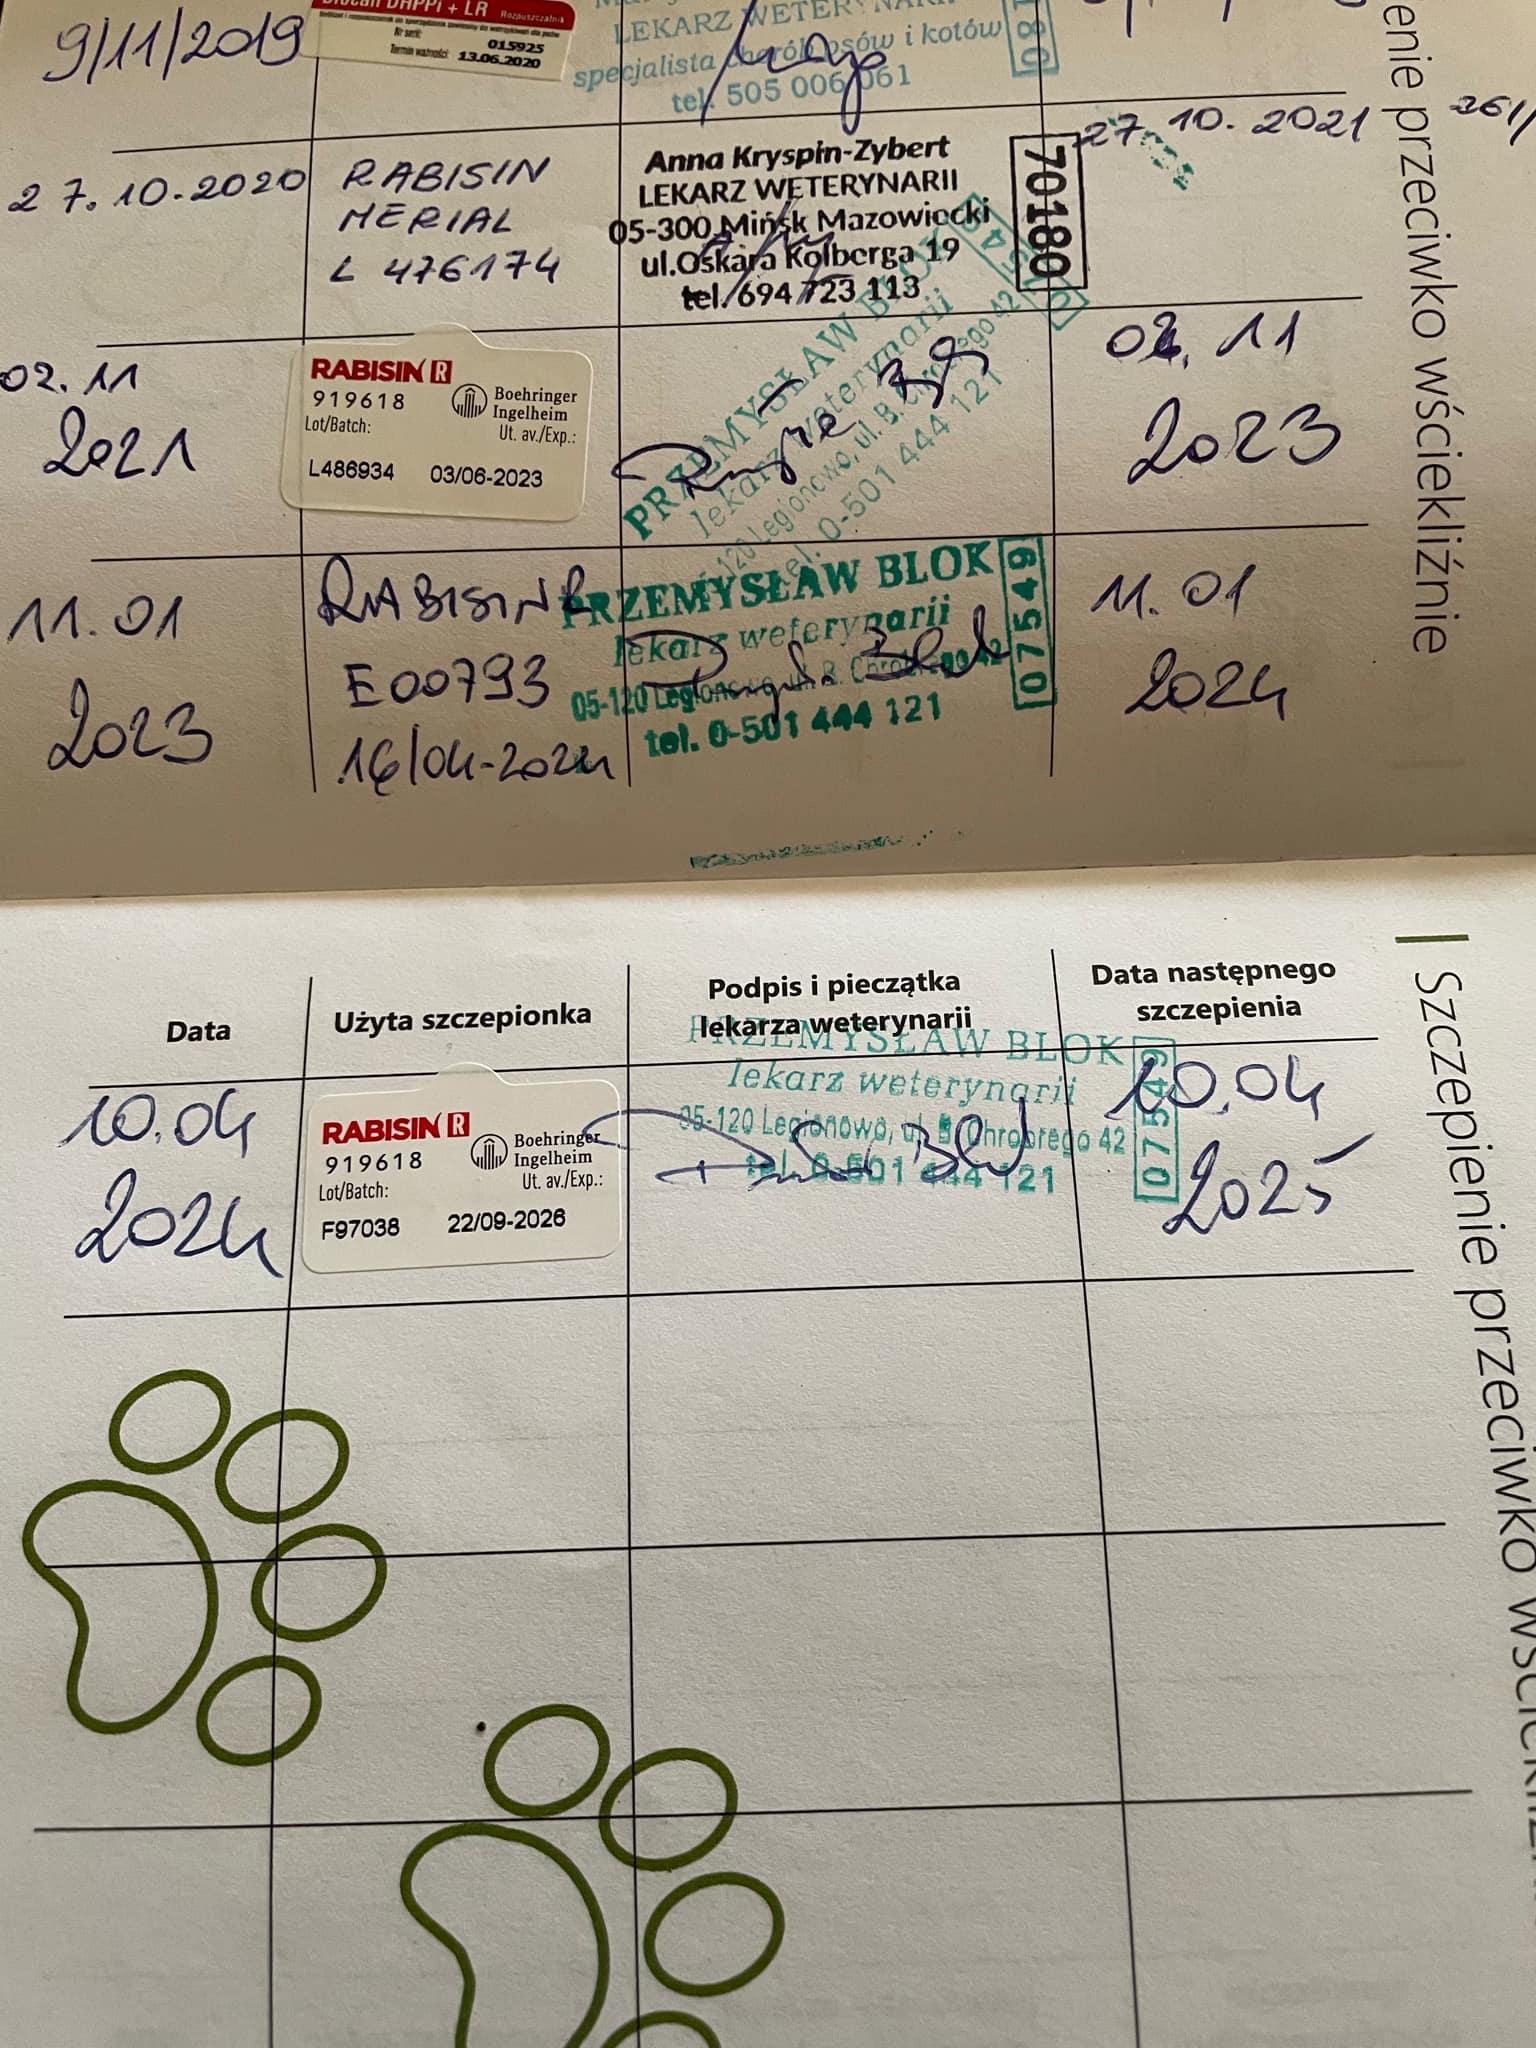 9/11/2019
Biocan DHPPi + LR Rozpuszczalnik
Nr serii: 015925
Termin ważności: 13.06.2020
LEKARZ WETERYNARII
specjalista chorób psów i kotów
tel. 505 006 061
27.10.2020
RABISIN
MERIAL
L 476174
Anna Kryspin-Zybert
LEKARZ WETERYNARII
05-300 Mińsk Mazowiecki
ul.Oskara Kolberga 19
tel. 694 723 113
70180
27.10.2021
02.11
2021
RABISIN R
919618
Boehringer
Ingelheim
Lot/Batch:
Ut. av./Exp.:
L486934 03/06-2023
PRZEMYSŁAW BLOK
lekarz weterynarii
05-120 Legionowo, ul. B. Chrobrego 42
tel. 0-501 444 121
02.11
2023
11.01
2023
RABISIN R
E00793
16/04-2024
PRZEMYSŁAW BLOK
lekarz weterynarii
05-120 Legionowo, ul. B. Chrobrego 42
tel. 0-501 444 121
07549
11.01
2024
enie przeciwko wściekliźnie
Data
Użyta szczepionka
Podpis i pieczątka
lekarza weterynarii
Data następnego
szczepienia
10.04
2024
RABISIN R
919618
Boehringer
Ingelheim
Lot/Batch:
Ut. av./Exp.:
F97038 22/09-2026
PRZEMYSŁAW BLOK
lekarz weterynarii
05-120 Legionowo, ul. B. Chrobrego 42
tel. 0-501 444 121
07549
10.04
2025
Szczepienie przeciwko wściekliźnie